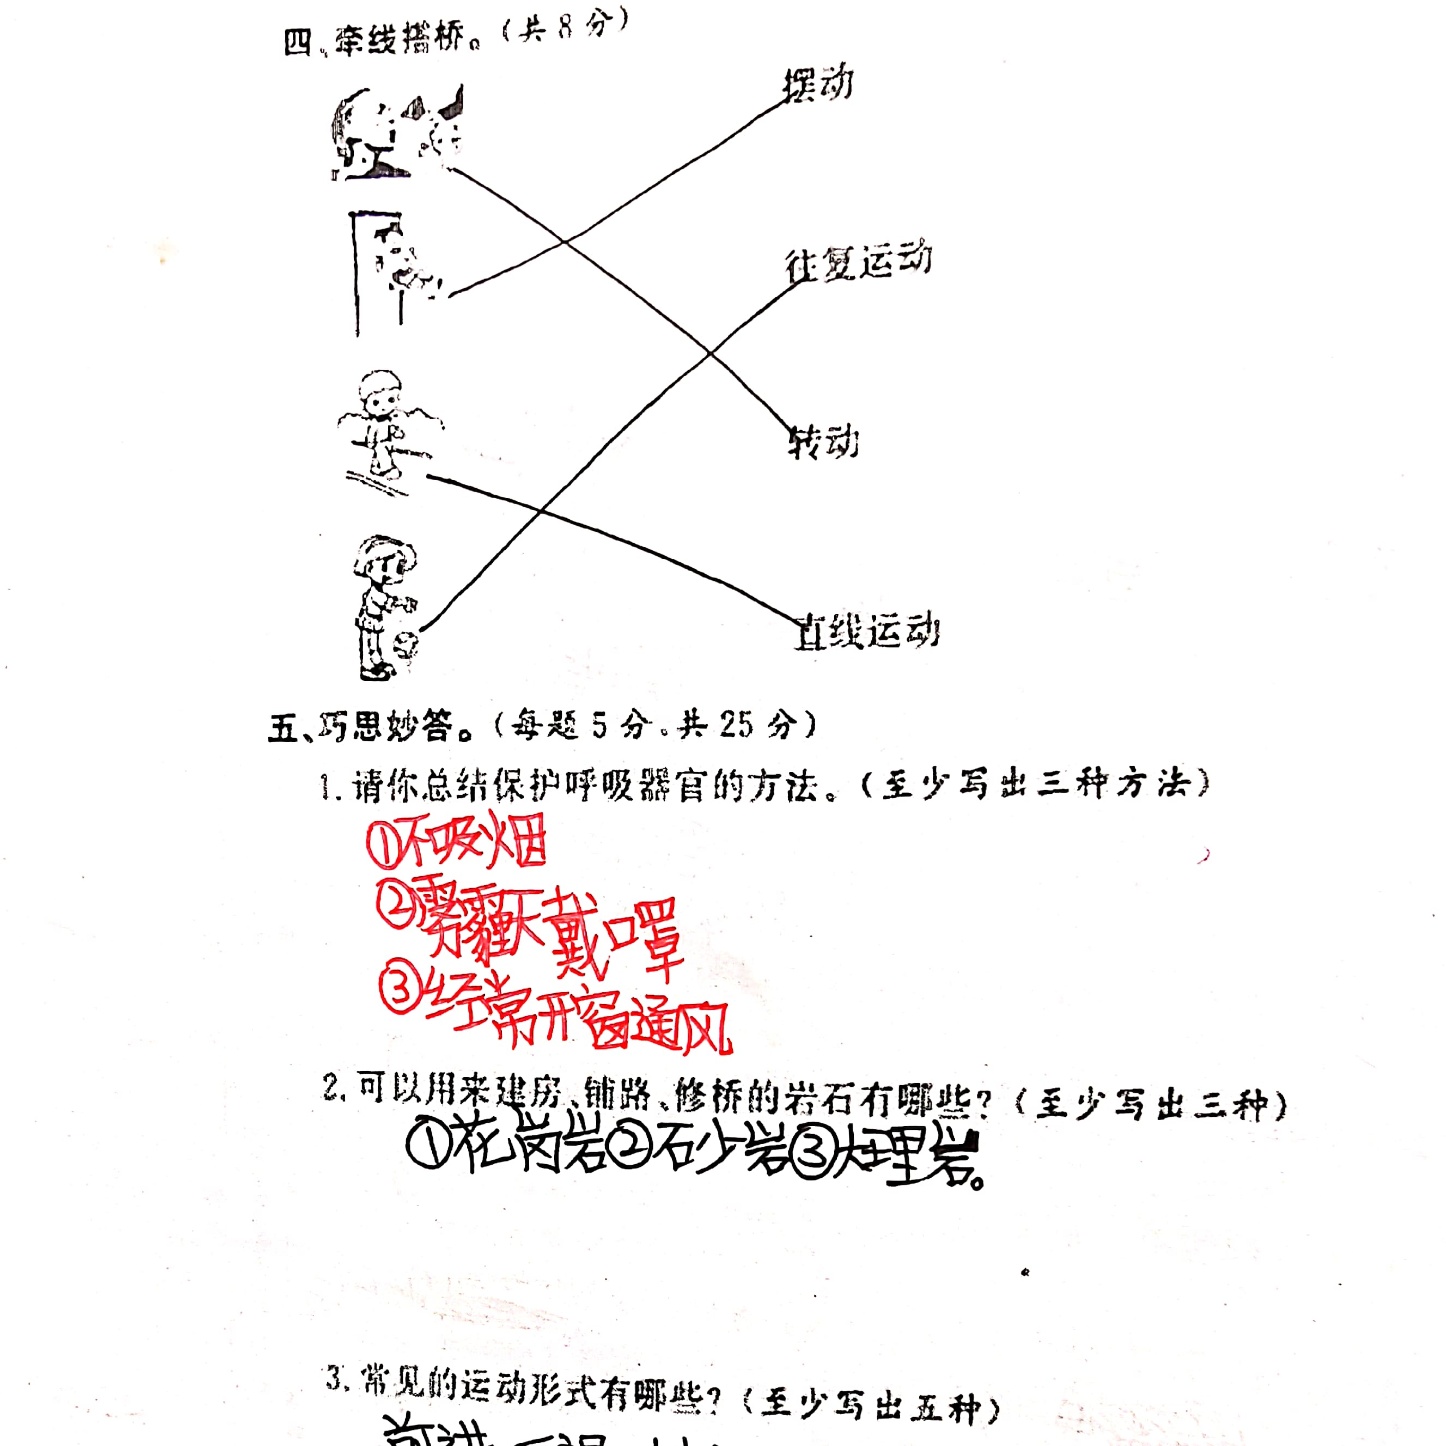 四、牵线搭桥。(共8分)
摆动
往复运动
转动
直线运动
五、巧思妙答。(每题5分。共25分)
1.请你总结保护呼吸器官的方法。(至少写出三种方法)
①不吸烟
②雾霾天戴口罩
③经常开窗通风
2.可以用来建房、铺路、修桥的岩石有哪些?(至少写出三种)
①花岗岩②石少岩③大理岩。
3.常见的运动形式有哪些?(至少写出五种)